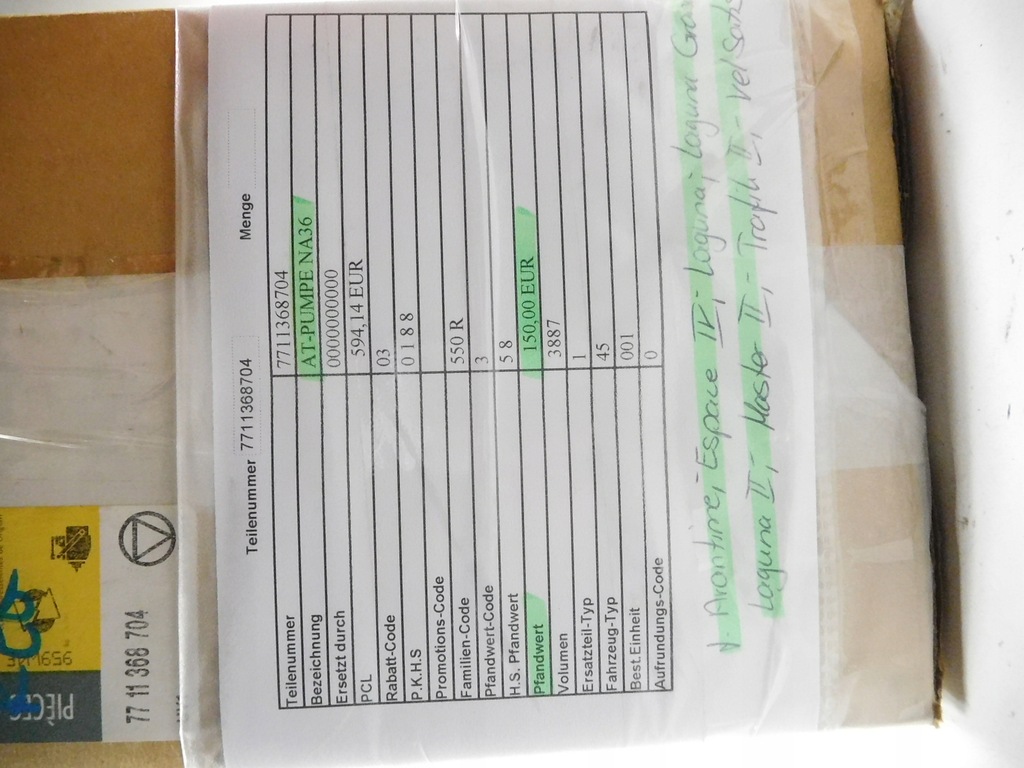 Teilenummer 7711368704 Menge
Teilenummer 7711368704
Bezeichnung AT-PUMPE NA36
Ersetzt durch 0000000000
PCL 594,14 EUR
Rabatt-Code 03
P.K.H.S 0 1 8 8
Promotions-Code
Familien-Code 550 R
Pfandwert-Code 3
H.S. Pfandwert 5 8
Pfandwert 150,00 EUR
Volumen 3887
Ersatzteil-Typ 1
Fahrzeug-Typ 45
Best.Einheit 001
Aufrundungs-Code 0
Avantime, Espace IV, Laguna, Laguna
Laguna II, Master II, Trafik II, Vel Satis
PIÈCES
77 11 368 704